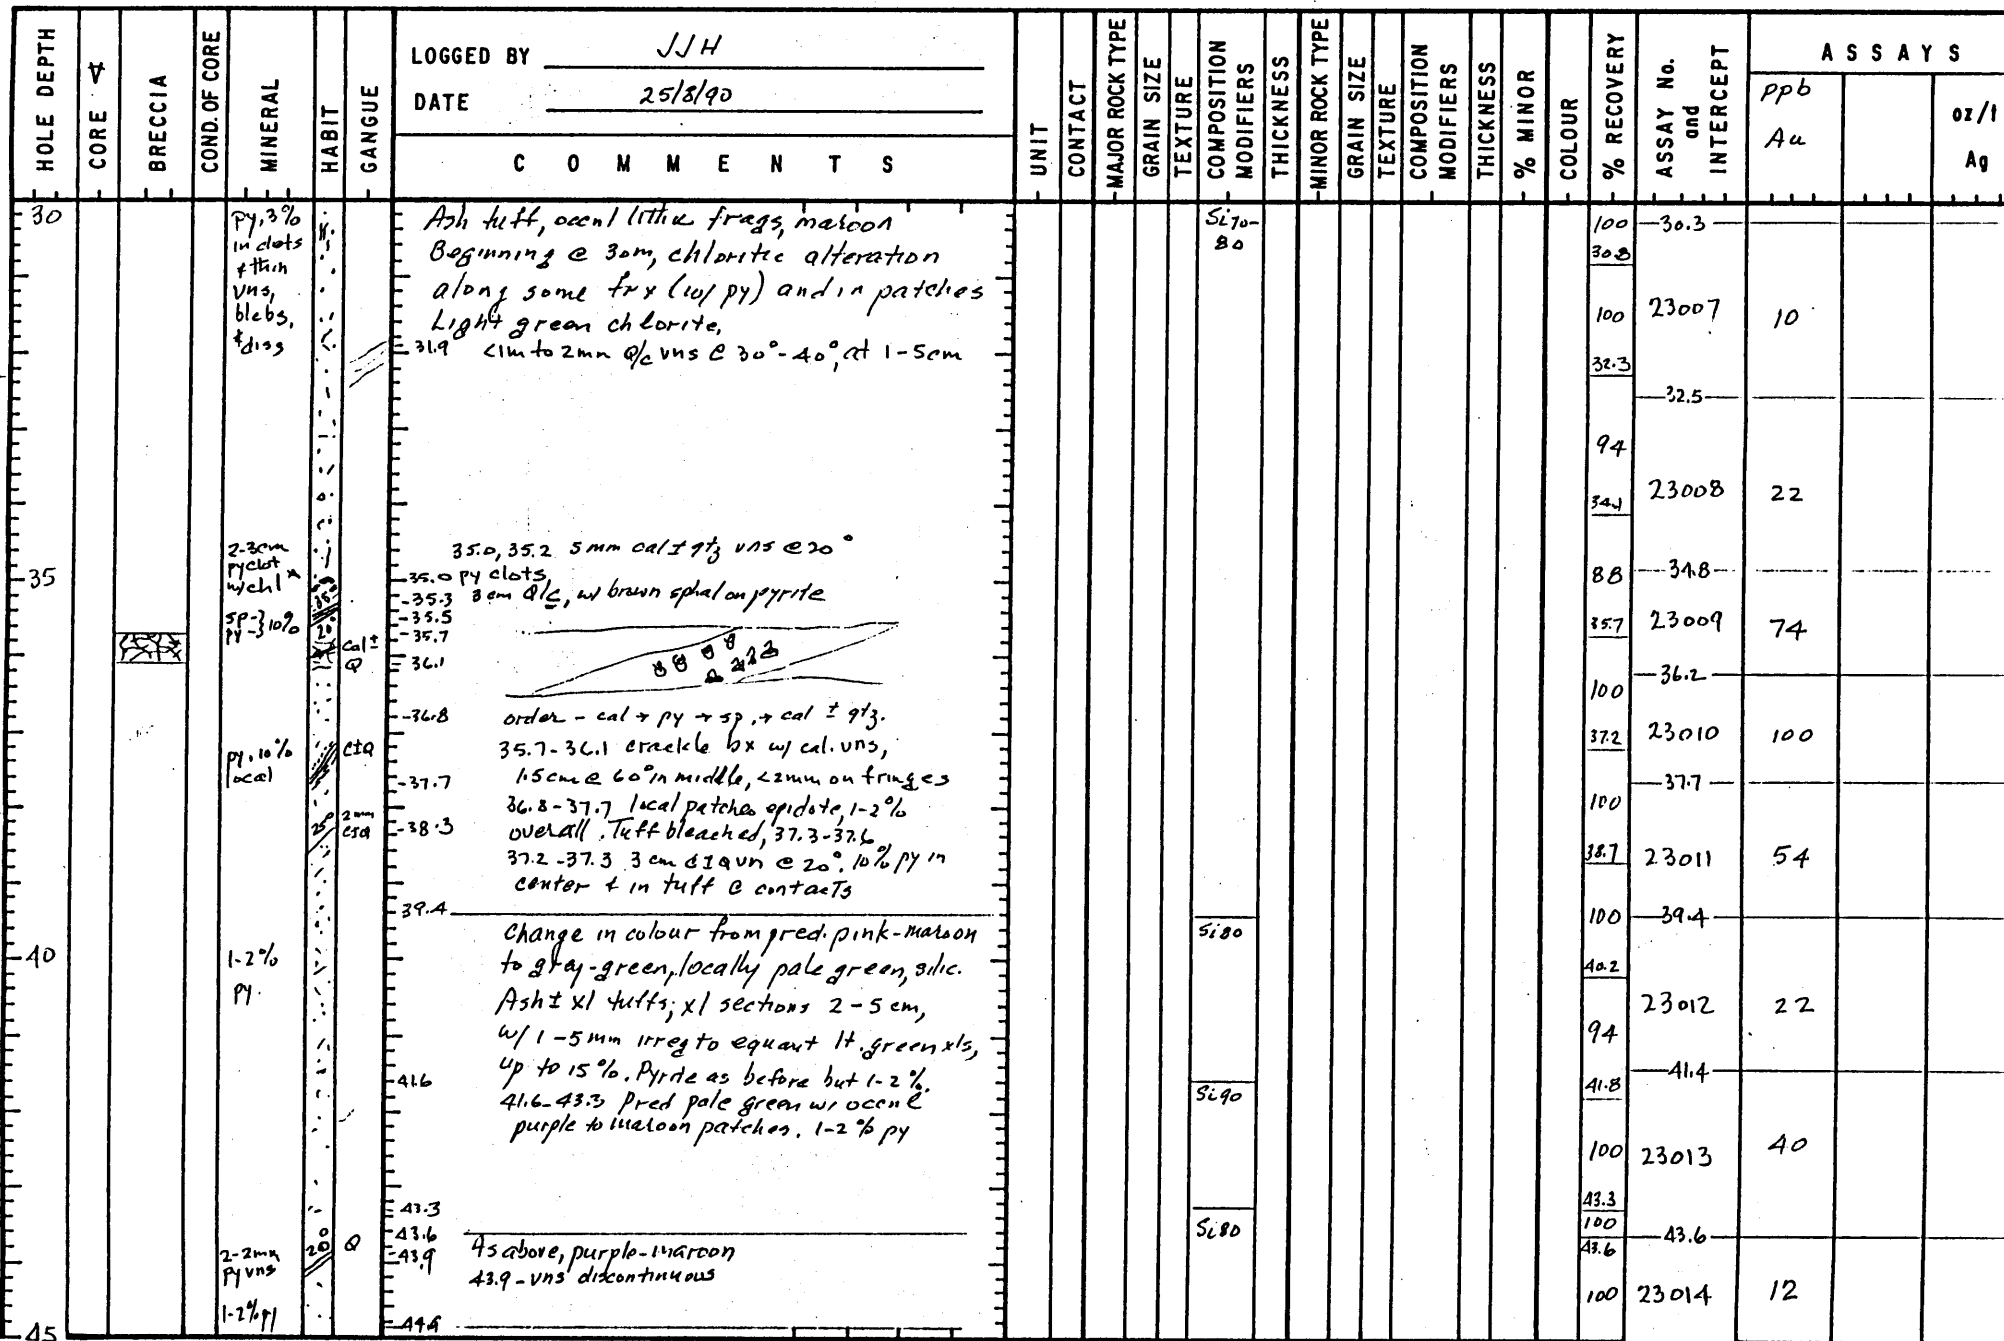 HOLE DEPTH
CORE ∀
BRECCIA
COND. OF CORE
MINERAL
HABIT
GANGUE
LOGGED BY JJH
DATE 25/8/90
COMMENTS
UNIT
CONTACT
MAJOR ROCK TYPE
GRAIN SIZE
TEXTURE
COMPOSITION
MODIFIERS
THICKNESS
MINOR ROCK TYPE
GRAIN SIZE
TEXTURE
COMPOSITION
MODIFIERS
THICKNESS
% MINOR
COLOUR
% RECOVERY
ASSAY No.
and
INTERCEPT
ASSAYS
ppb
Au
oz/t
Ag
30
35
40
45
py, 3%
in clots
+ thin
vns,
blebs,
+ diss
2-3cm
py clot
w/chl
sp-} 10%
py-}
py, 10%
local
1-2%
py.
2-2mm
py vns
1-2% py
35°
20°
25°
20
cal ±
Q
C±Q
2mm
C±Q
Q
Ash tuff, occnl lithic frags, maroon
Beginning @ 30m, chloritic alteration
along some frx (w/ py) and in patches
Light green chlorite,
31.9 <1m to 2mm Q/c vns @ 30°-40°, at 1-5cm
35.0, 35.2 5mm cal ± qtz vns @ 20°
35.0 py clots
35.3 3cm Q/c, w/ brown sphal on pyrite
35.5
35.7
36.1
36.8 order - cal → py → sp, → cal ± qtz.
35.7-36.1 crackle bx w/ cal. vns,
1.5cm @ 60° in middle, <2mm on fringes
37.7
36.8-37.7 local patches epidote, 1-2%
38.3 overall. Tuff bleached, 37.3-37.6
37.2-37.3 3cm c±Q vn @ 20°. 10% py in
center + in tuff @ contacts
39.4
Change in colour from pred. pink-maroon
to gray-green, locally pale green, silic.
Ash ± xl tuffs; xl sections 2-5cm,
w/ 1-5mm irreg to equant lt. green xls,
up to 15%. Pyrite as before but 1-2%.
41.6
41.6-43.3 Pred pale green w/ occnl
purple to maroon patches. 1-2% py
43.3
43.6
43.9 As above, purple-maroon
43.9 - vns discontinuous
Si70-
80
Si80
Si90
Si80
100
30.8
100
32.3
94
34.1
88
35.7
100
37.2
100
38.7
100
40.2
94
41.8
100
43.3
100
43.6
100
30.3
23007 10
32.5
23008 22
34.8
23009 74
36.2
23010 100
37.7
23011 54
39.4
23012 22
41.4
23013 40
43.6
23014 12